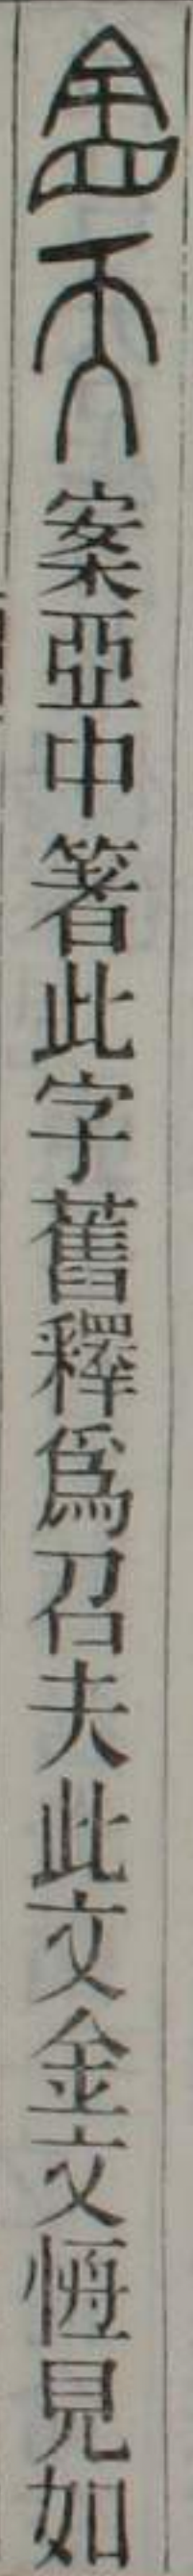 案亞中箸此字舊釋爲召夫此文金文恆見如